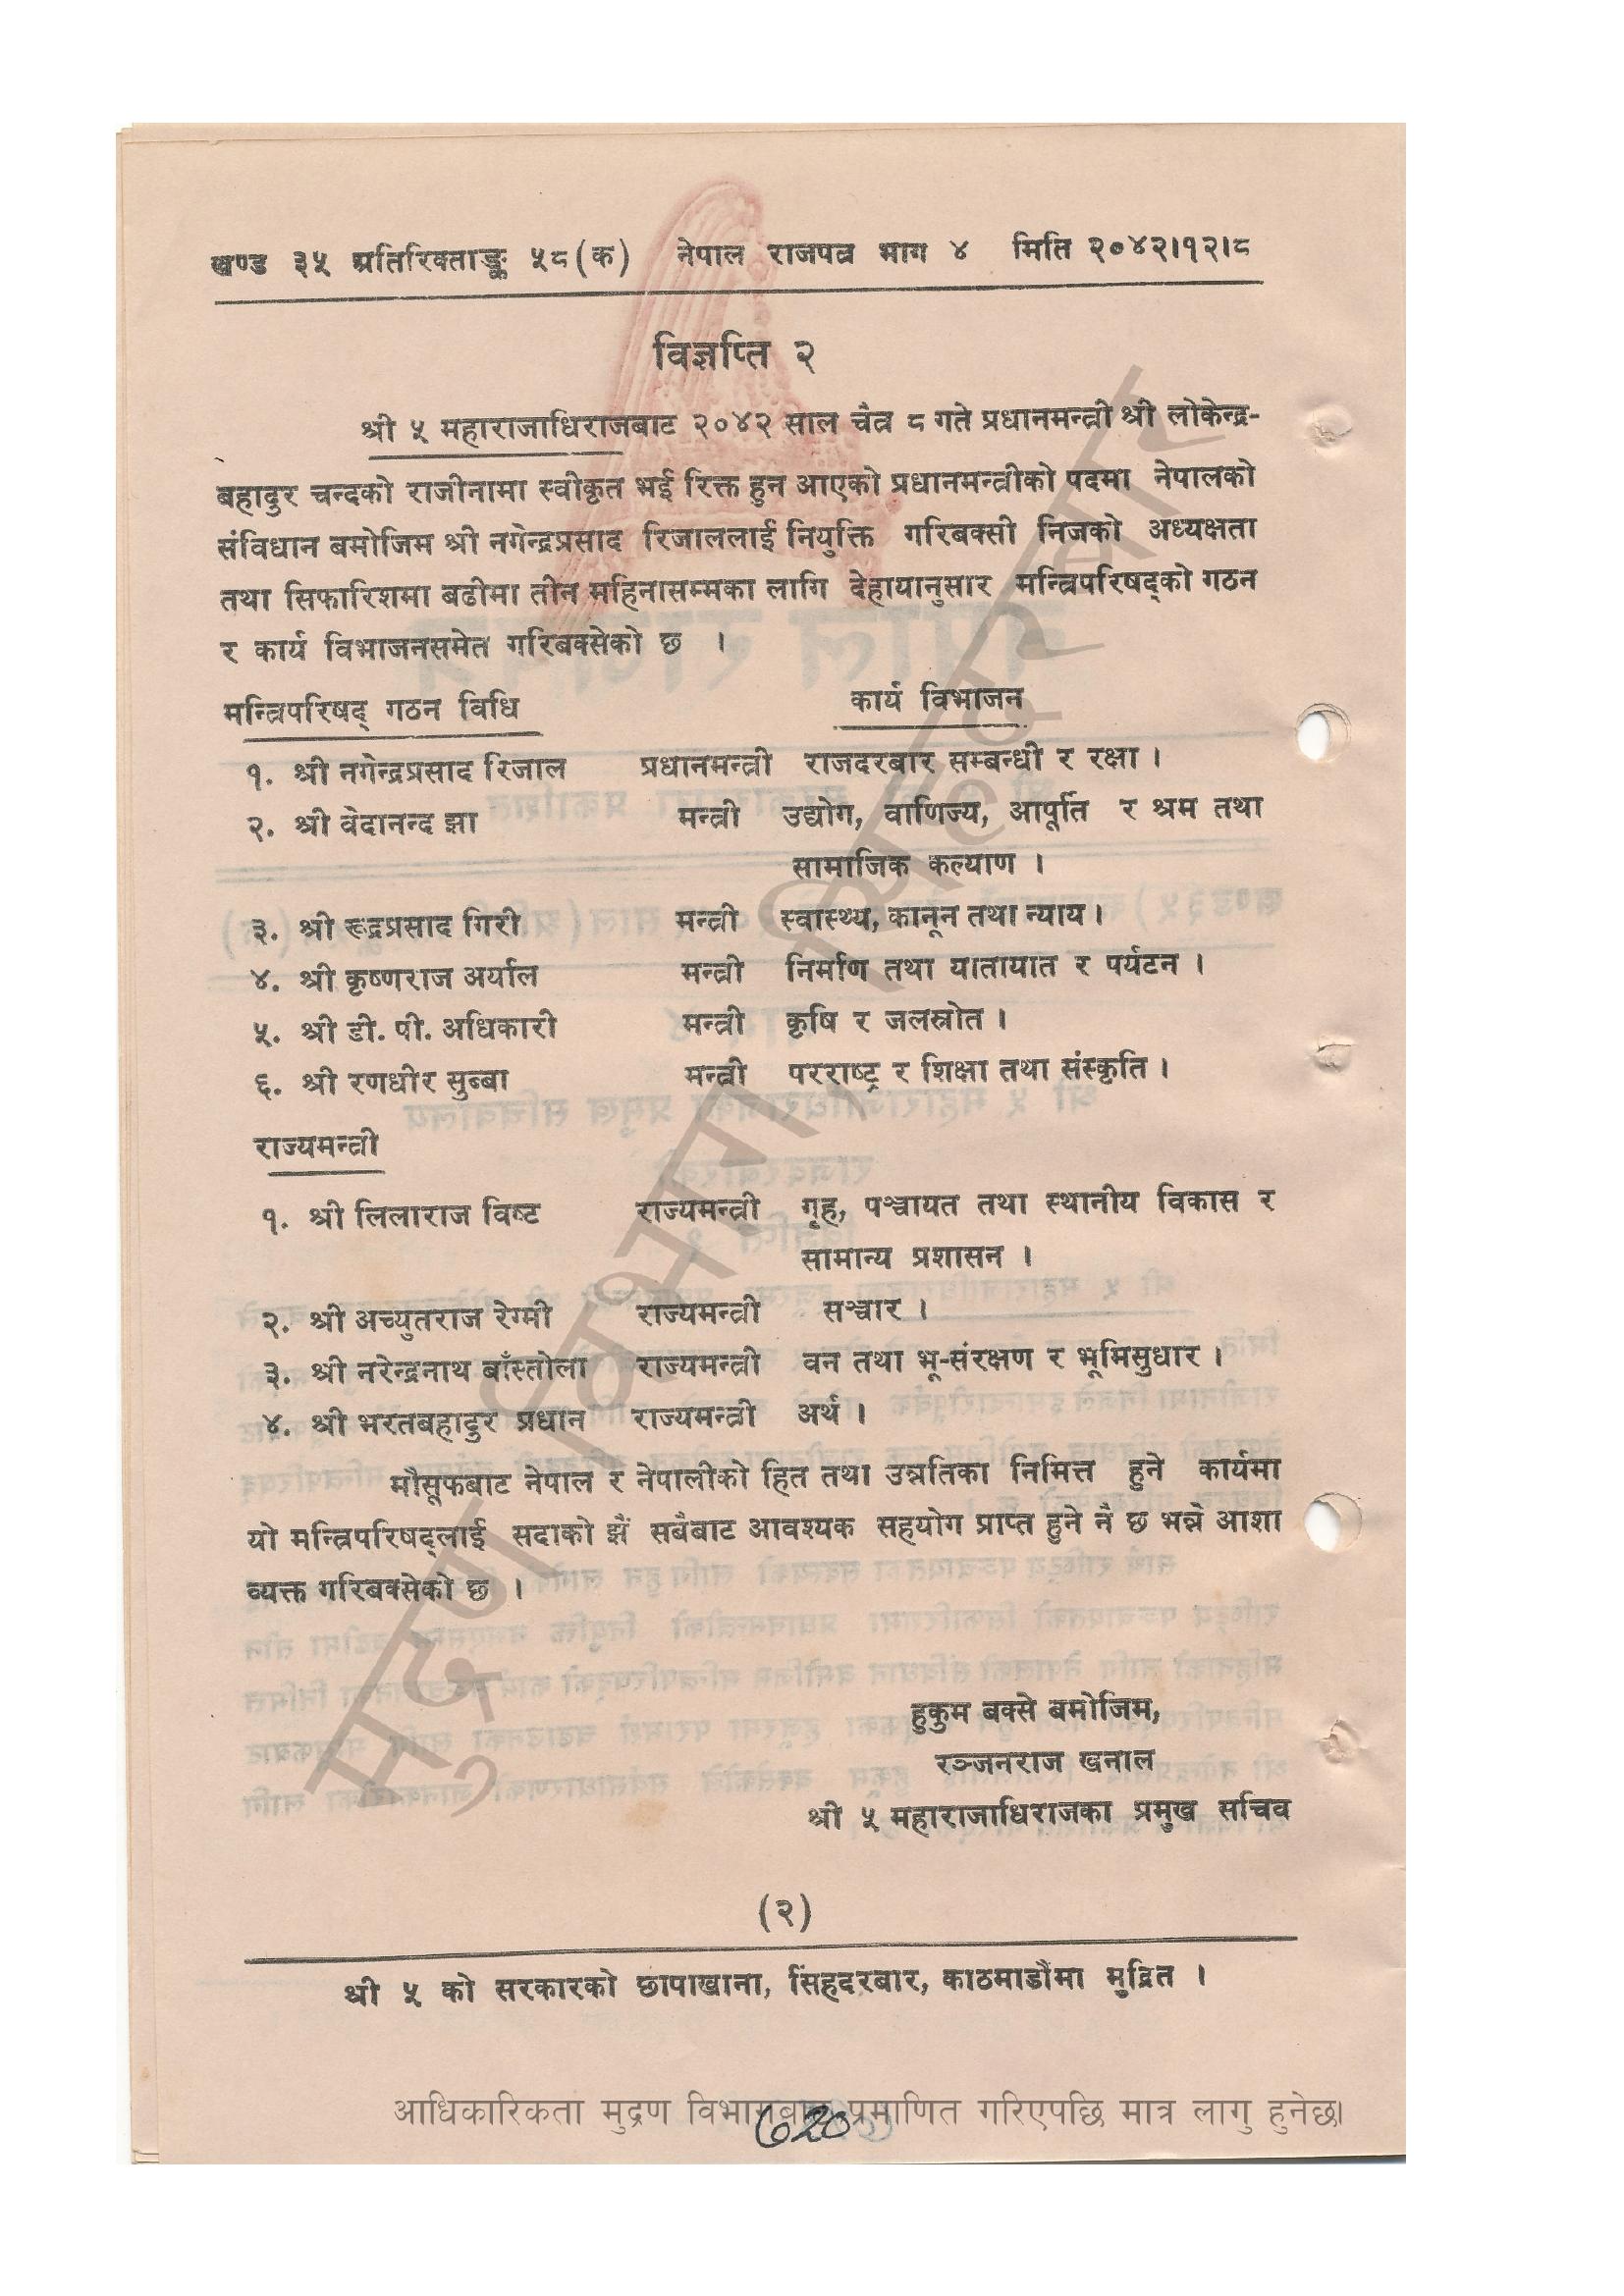 खण्ड ३५ अतिरिक्ताङ्क ५८(क) नेपाल राजपत्र भाग ४ मिति २०४२।१२।८
विज्ञप्ति २
श्री ५ महाराजाधिराजबाट २०४२ साल चैत्र ८ गते प्रधानमन्त्री श्री लोकेन्द्र-
बहादुर चन्दको राजीनामा स्वीकृत भई रिक्त हुन आएको प्रधानमन्त्रीको पदमा नेपालको
संविधान बमोजिम श्री नगेन्द्रप्रसाद रिजाललाई नियुक्ति गरिबक्सी निजको अध्यक्षता
तथा सिफारिशमा बढीमा तीन महिनासम्मका लागि देहायानुसार मन्त्रिपरिषद्को गठन
र कार्य विभाजनसमेत गरिबक्सेको छ ।
मन्त्रिपरिषद् गठन विधि कार्य विभाजन
१. श्री नगेन्द्रप्रसाद रिजाल प्रधानमन्त्री राजदरबार सम्बन्धी र रक्षा ।
२. श्री वेदानन्द झा मन्त्री उद्योग, वाणिज्य, आपूर्ति र श्रम तथा
सामाजिक कल्याण ।
३. श्री रूद्रप्रसाद गिरी मन्त्री स्वास्थ्य, कानून तथा न्याय ।
४. श्री कृष्णराज अर्याल मन्त्री निर्माण तथा यातायात र पर्यटन ।
५. श्री डी. पी. अधिकारी मन्त्री कृषि र जलस्रोत ।
६. श्री रणधीर सुब्बा मन्त्री परराष्ट्र र शिक्षा तथा संस्कृति ।
राज्यमन्त्री
१. श्री लिलाराज विष्ट राज्यमन्त्री गृह, पञ्चायत तथा स्थानीय विकास र
सामान्य प्रशासन ।
२. श्री अच्युतराज रेग्मी राज्यमन्त्री सञ्चार ।
३. श्री नरेन्द्रनाथ बाँस्तोला राज्यमन्त्री वन तथा भू-संरक्षण र भूमिसुधार ।
४. श्री भरतबहादुर प्रधान राज्यमन्त्री अर्थ ।
मौसूफबाट नेपाल र नेपालीको हित तथा उन्नतिका निमित्त हुने कार्यमा
यो मन्त्रिपरिषद्लाई सदाको झैं सबैबाट आवश्यक सहयोग प्राप्त हुने नै छ भन्ने आशा
व्यक्त गरिबक्सेको छ ।
हुकुम बक्से बमोजिम,
रञ्जनराज खनाल
श्री ५ महाराजाधिराजका प्रमुख सचिव
(२)
श्री ५ को सरकारको छापाखाना, सिंहदरबार, काठमाडौंमा मुद्रित ।
आधिकारिकता मुद्रण विभागबाट प्रमाणित गरिएपछि मात्र लागु हुनेछ।
मुद्रण विभाग, सिंहदरबार